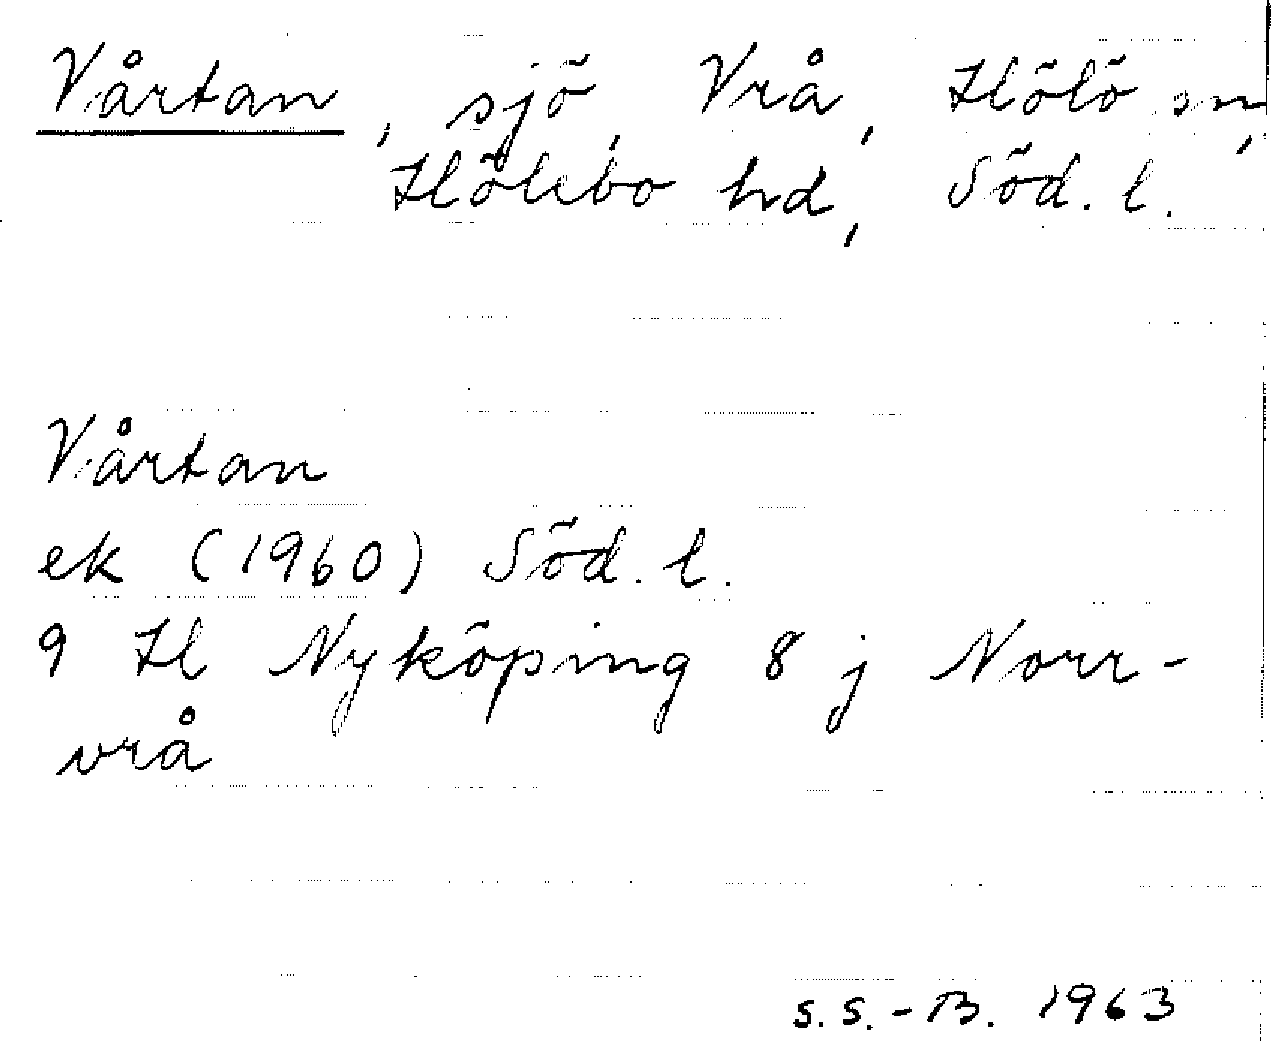 Vårtan, sjö, Vrå, Hölö sn,
Hölebo hd, Söd. l.
Vårtan
ek (1960) Söd. l.
9 H Nyköping 8 j Norr-
vrå
S.S.-B. 1963